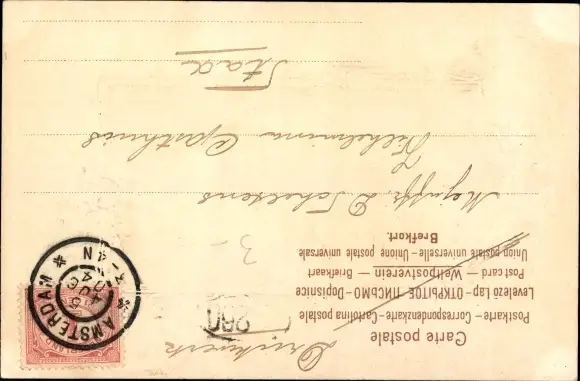 Carte postale
Postkarte – Correspondenzkarte – Cartolina postale
Levelező Lap – ОТКРЫТОЕ ПИСЬМО – Dopisnice
Post card – Weltpostverein – Briefkaart
Union postale universelle – Unione postale universale
Brefkort.
Drukwerk
3–
Mejuffr. D. Scheltens
Wilhelmina Gasthuis
Stad
AMSTERDAM
5 AUG
04
3-4N